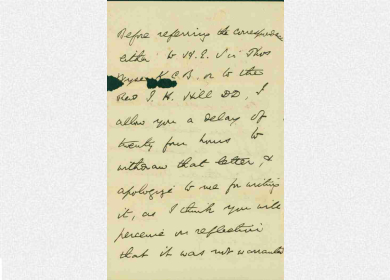 Before referring the correspondence
either to H.E. Sir Thos
K.C.B. or to the
Rev J. H. Hill DD, I
allow you a delay of
twenty four hours to
withdraw that letter, &
apologize to me for writing
it, as I think you will
perceive on reflection
that it was not warranted